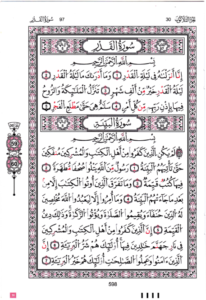 سورة القدر 97 30 الجزء الثلاثون
سورة القدر
بسم الله الرحمن الرحيم
إنا أنزلناه في ليلة القدر وما أدراك ما ليلة القدر
ليلة القدر خير من ألف شهر تنزل الملائكة والروح
فيها بإذن ربهم من كل أمر سلام هي حتى مطلع الفجر
سورة البينة
بسم الله الرحمن الرحيم
لم يكن الذين كفروا من أهل الكتاب والمشركين منفكين
حتى تأتيهم البينة رسول من الله يتلو صحفا مطهرة
فيها كتب قيمة وما تفرق الذين أوتوا الكتاب إلا من
بعد ما جاءتهم البينة وما أمروا إلا ليعبدوا الله مخلصين
له الدين حنفاء ويقيموا الصلاة ويؤتوا الزكاة وذلك دين
القيمة إن الذين كفروا من أهل الكتاب والمشركين
في نار جهنم خالدين فيها أولئك هم شر البرية
إن الذين آمنوا وعملوا الصالحات أولئك هم خير البرية
598